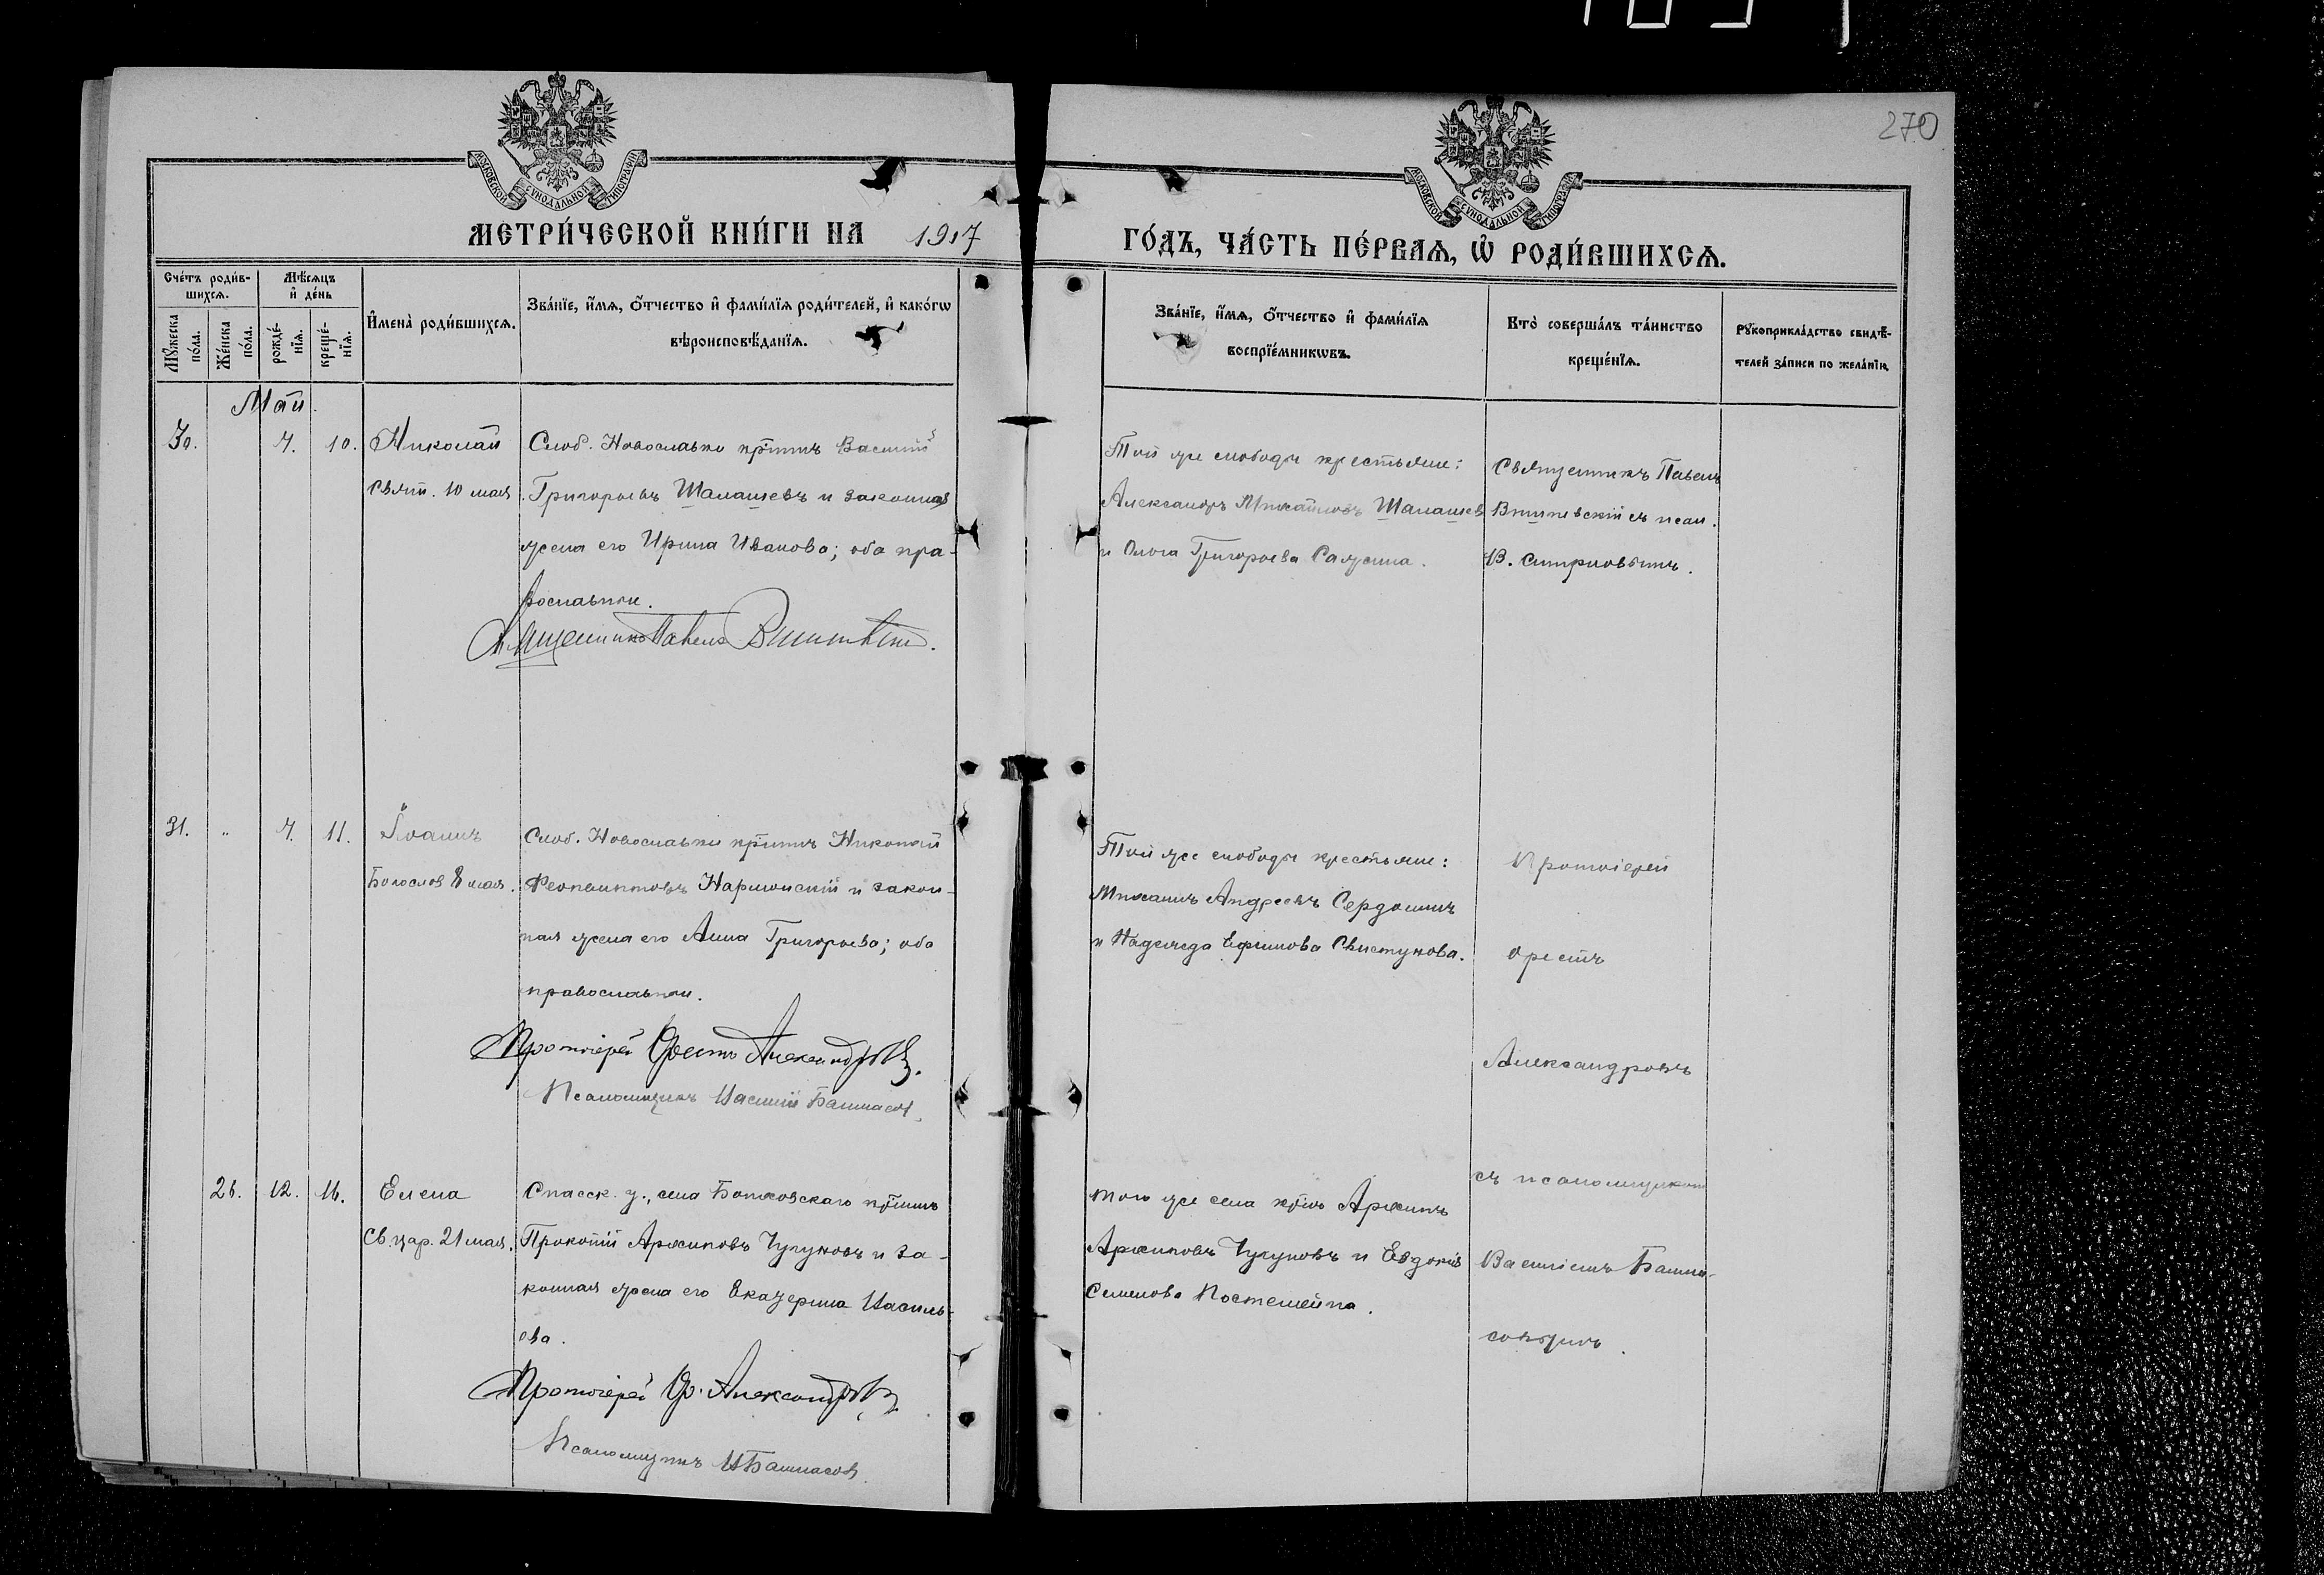 270
МОСКОВСКОЙ СУНОДАЛЬНОЙ ТИПОГРАФІИ
МОСКОВСКОЙ СУНОДАЛЬНОЙ ТИПОГРАФІИ
МЕТРИ́ЧЕСКОЙ КНИ́ГИ НА 1917
ГО́ДЪ, ЧА́СТЬ ПЕ́РВАЯ, Ѡ РОДИ́ВШИХСЯ.
Сче́тъ роди́в-
шихся.
Мѣ́сяцъ
и де́нь
Му́жеска
по́ла.
Же́нска
по́ла.
рожде́-
нія.
креще́-
нія.
Имена̀ роди́вшихся.
Зва́ніе, и́мя, о́тчество и фами́лія роди́телей, и како́гѡ
вѣроисповѣ́данія.
Зва́ніе, и́мя, о́тчество и фами́лія
воспріе́мникѡвъ.
Кто̀ соверша́лъ та́инство
креще́нія.
Рукоприкла́дство свидѣ́-
телей за́писи по жела́нію.
Май.
30. 7. 10. Николай
Свят. 10 мая
Слоб. Новославки кр̃тинъ Василій
Григорьевъ Шалашевъ и законная
жена его Ирина Иванова; оба пра-
вославные.
Священникъ Павелъ
Той же слободы крестьяне:
Александръ Михайловъ Шалашев
и Ольга Григорьева Сажина.
Священникъ Павелъ
съ псал.
В. Смирновымъ.
31. " 7. 11. Іоаннъ
Богослов 8 мая.
Слоб. Новославки кр̃тинъ Николай
Феопемптовъ Нармонскій и закон-
ная жена его Анна Григорьева; оба
православные.
Протоіерей Орестъ Александровъ.
Псаломщикъ Василій Башмасов
Той же слободы крестьяне:
Михаилъ Андреевъ Сердошин
и Надежда Ефимова Свистунова.
Протоіерей
Орестъ
Александровъ
съ псаломщиком
26. 12. 16. Елена
Св. цар. 21 мая.
Спасск. у., села кр̃тинъ
Прокопій Архиповъ Чугуновъ и за-
конная жена его Екатерина Василь-
ева.
Протоіерей Ор. Александровъ
Псаломщикъ В Башмасов.
того же села кр̃нъ Архипъ
Архиповъ Чугуновъ и Евдокія
Семенова
Василіемъ Башма-
совымъ.